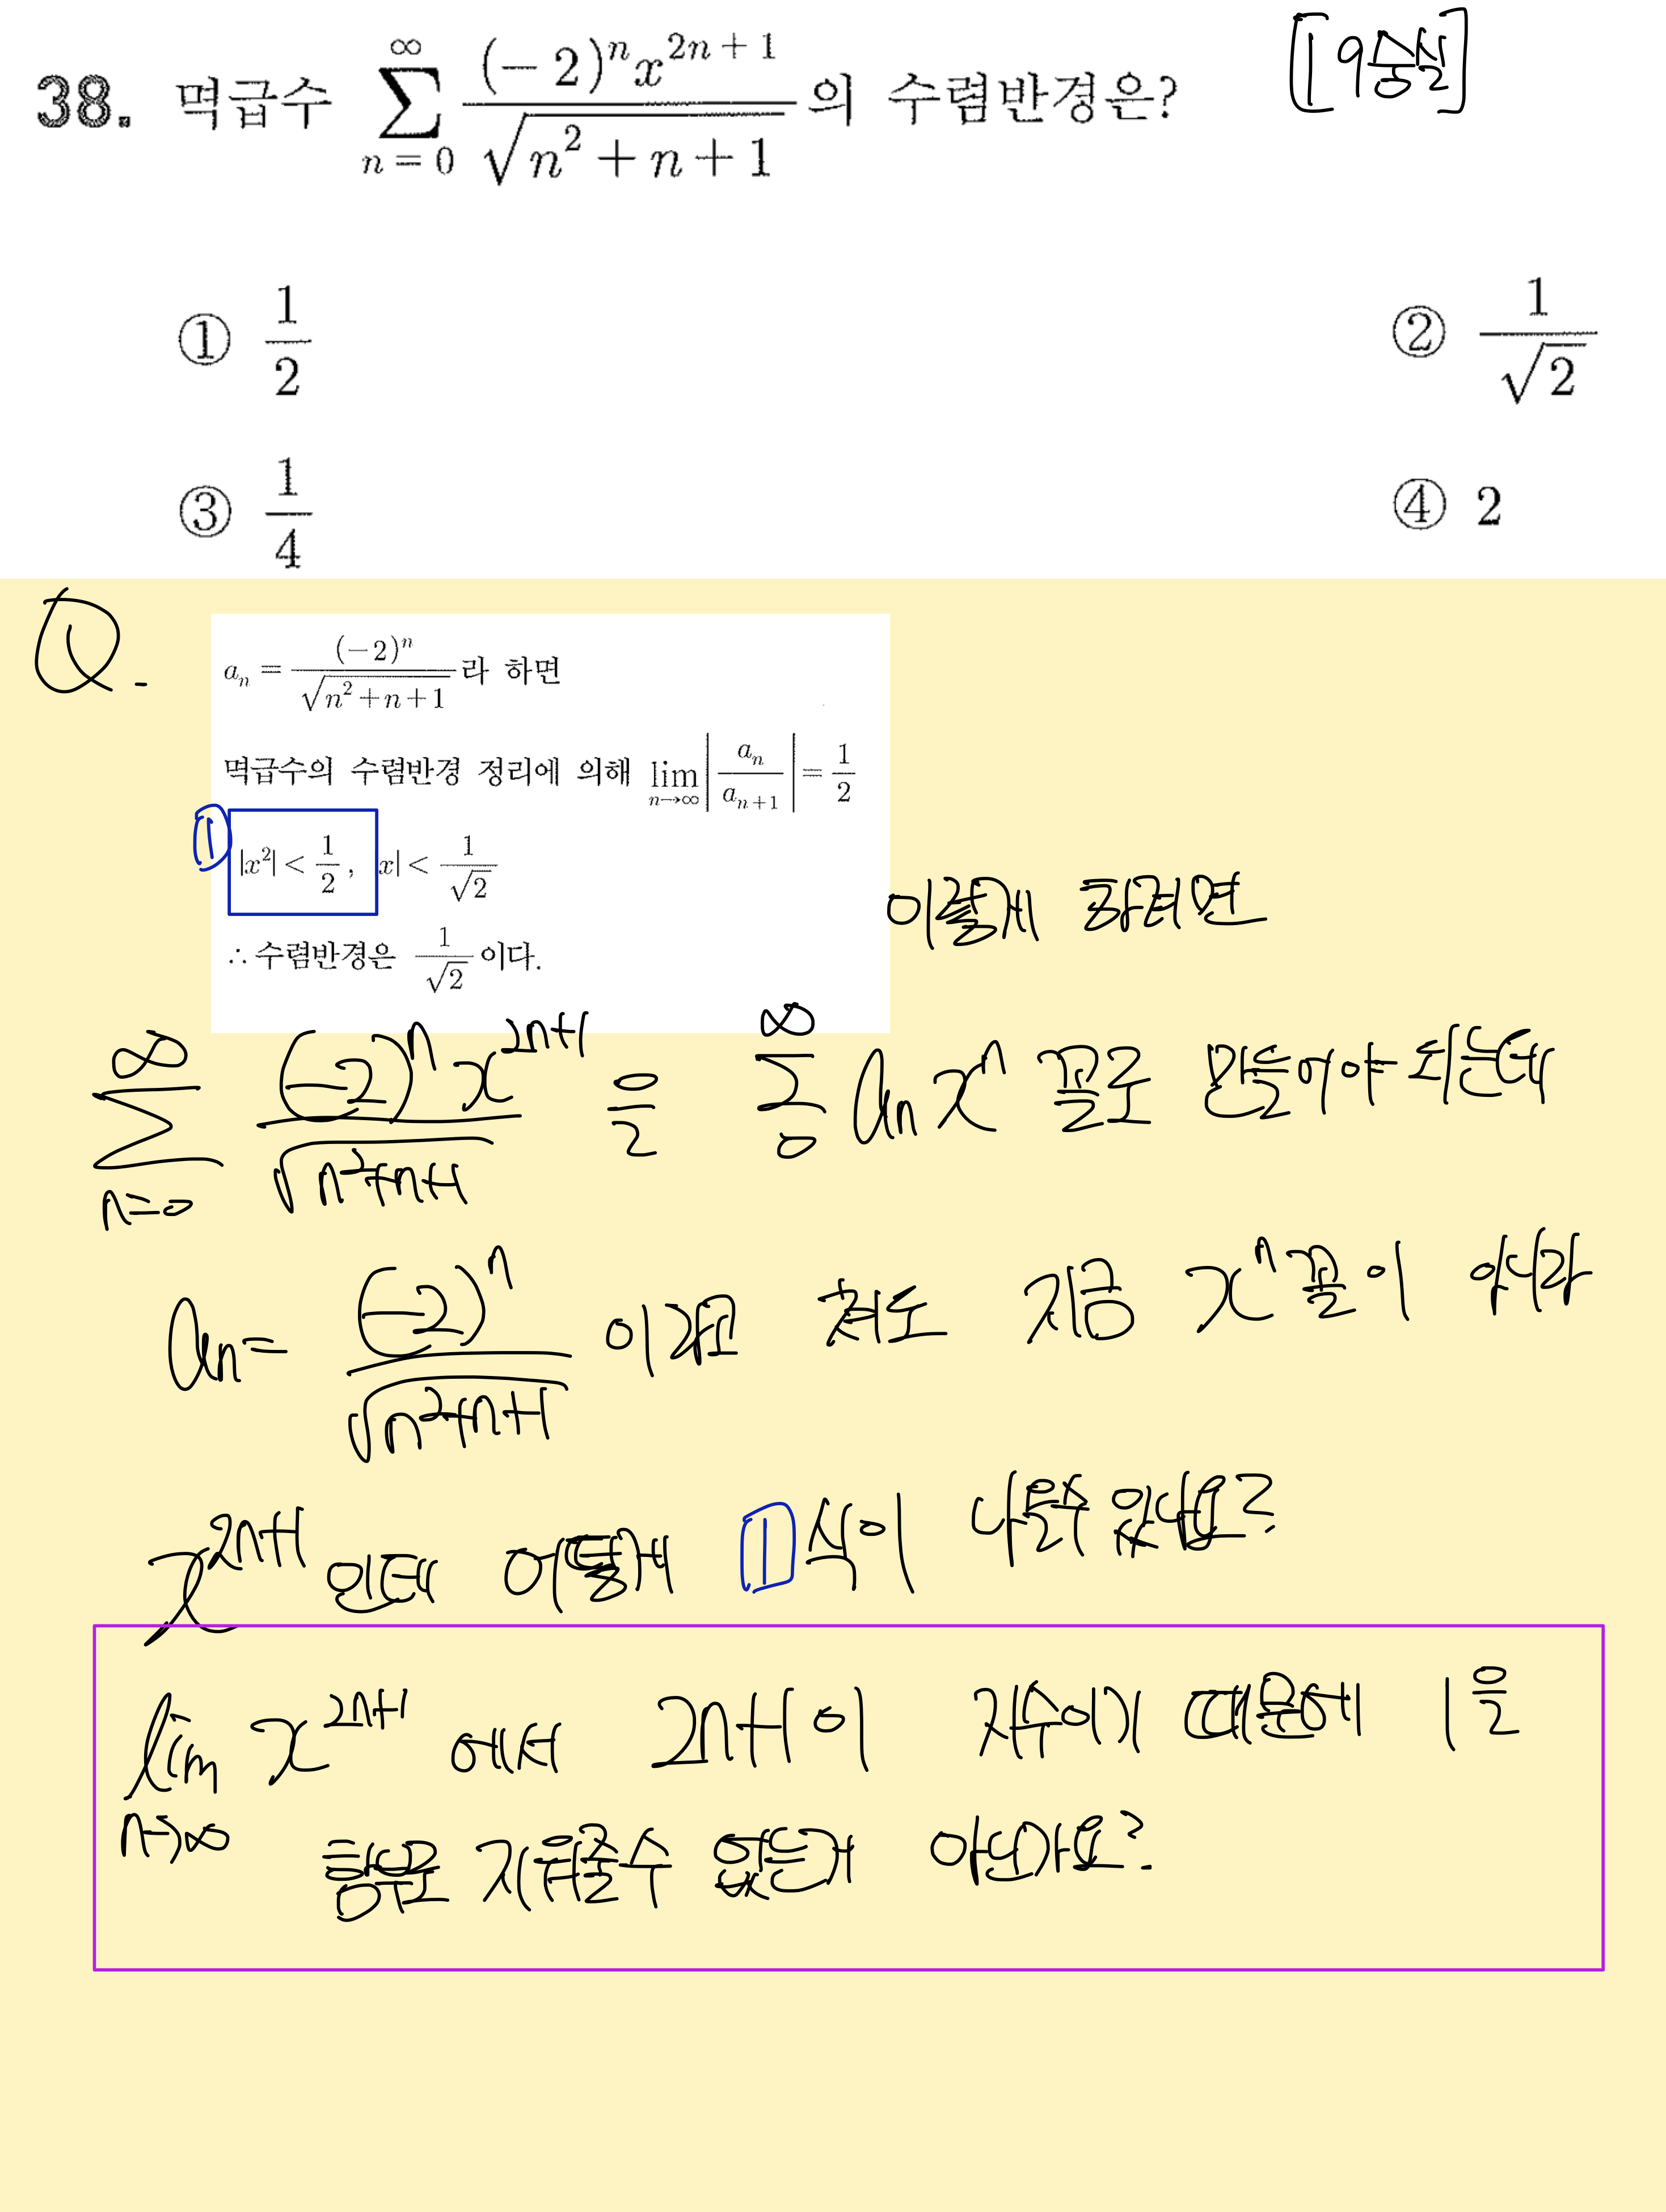 38. 멱급수 \sum_{n=0}^{\infty} \frac{(-2)^n x^{2n+1}}{\sqrt{n^2+n+1}} 의 수렴반경은? [19숭실]
① \frac{1}{2} ② \frac{1}{\sqrt{2}}
③ \frac{1}{4} ④ 2
Q.
a_n = \frac{(-2)^n}{\sqrt{n^2+n+1}} 라 하면
멱급수의 수렴반경 정리에 의해 \lim_{n→∞} \left| \frac{a_n}{a_{n+1}} \right| = \frac{1}{2}
① |x^2| < \frac{1}{2}, x| < \frac{1}{\sqrt{2}}
∴ 수렴반경은 \frac{1}{\sqrt{2}} 이다.
이렇게 하려면
\sum_{n=0}^{\infty} \frac{(-2)^n x^{2n+1}}{\sqrt{n^2+n+1}} 을 \sum_{0}^{\infty} a_n x^n 꼴로 만들어야 되는데
a_n = \frac{(-2)^n}{\sqrt{n^2+n+1}} 이라고 쳐도 지금 x^n 꼴이 아니라
x^{2n+1} 인데 어떻게 ① 식이 나올수 있나요?
\lim_{n→∞} x^{2n+1} 에서 2n+1 이 지수이기 때문에 1을
함부로 지워줄수 없는거 아닌가요?